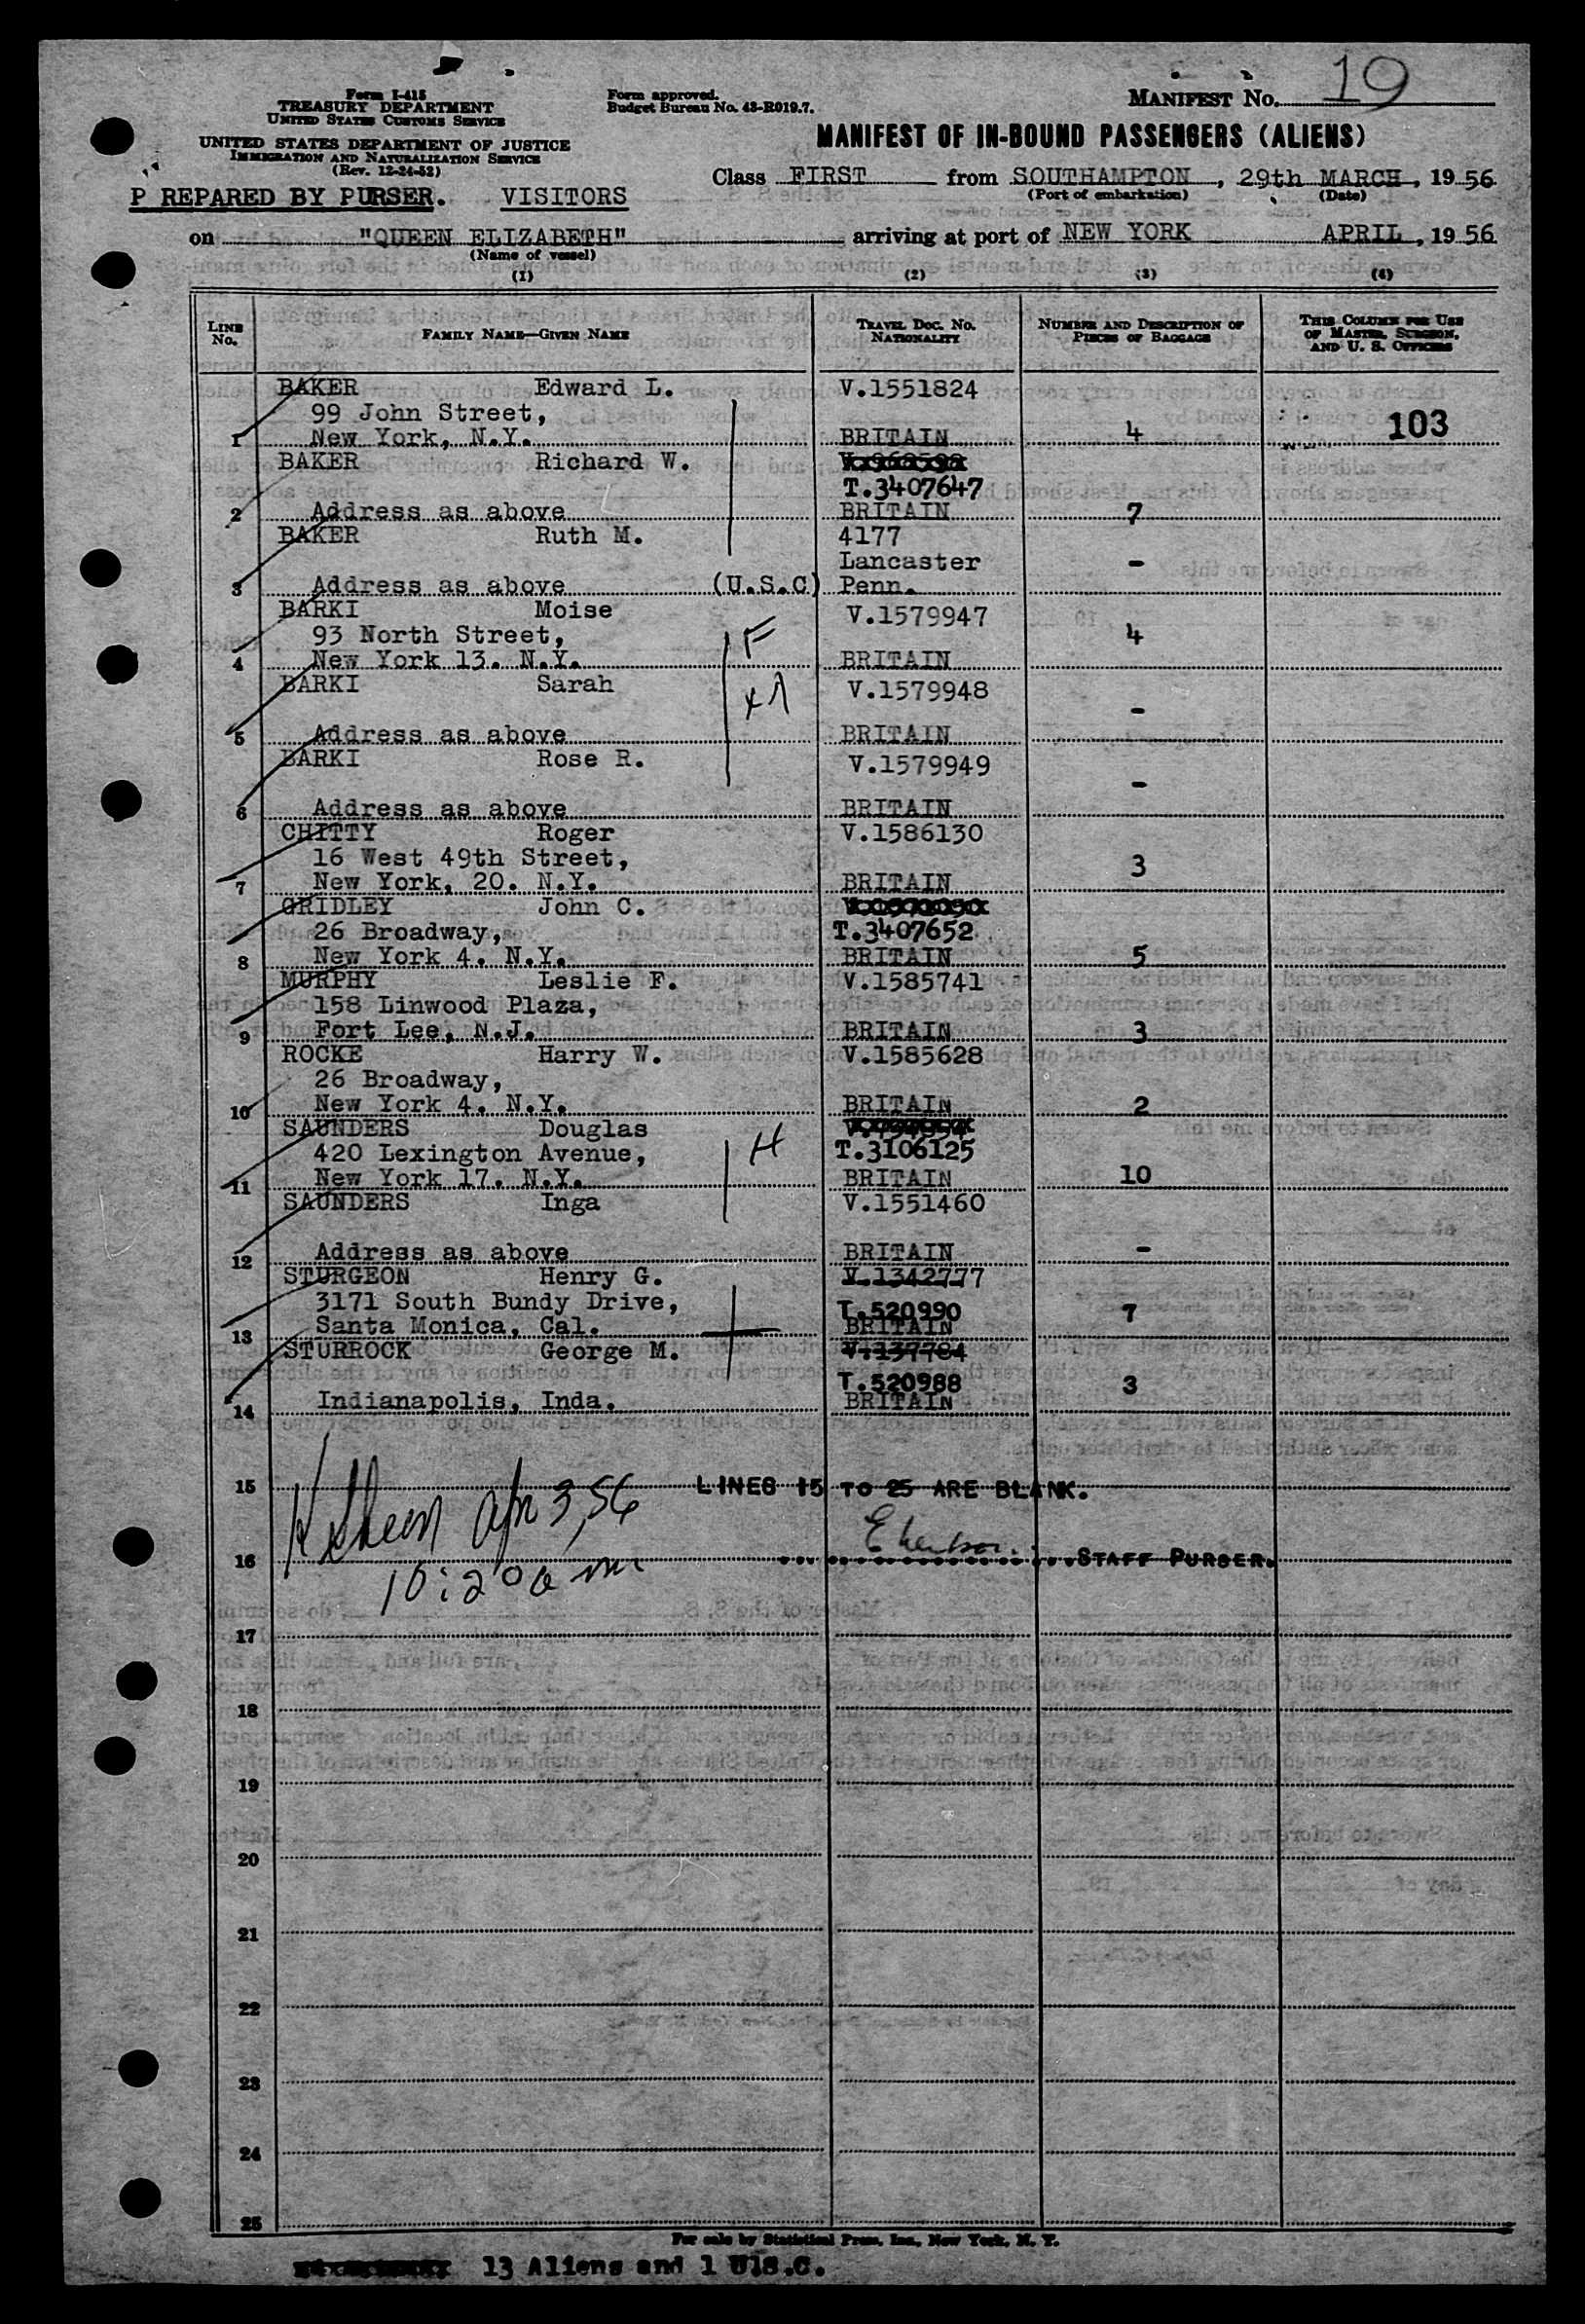 19
Form I-415
TREASURY DEPARTMENT
UNITED STATES CUSTOMS SERVICE
Form approved.
Budget Bureau No. 43-R019.7.
MANIFEST No.
UNITED STATES DEPARTMENT OF JUSTICE
IMMIGRATION AND NATURALIZATION SERVICE
(Rev. 12-24-52)
MANIFEST OF IN-BOUND PASSENGERS (ALIENS)
Class FIRST from SOUTHAMPTON, 29th MARCH, 1956
(Port of embarkation) (Date)
P REPARED BY PURSER. VISITORS
on "QUEEN ELIZABETH" arriving at port of NEW YORK APRIL, 1956
(Name of vessel)
(1) (2) (3) (4)
LINE No. FAMILY NAME—GIVEN NAME TRAVEL DOC. No. NATIONALITY NUMBER AND DESCRIPTION OF PIECES OF BAGGAGE THIS COLUMN FOR USE OF MASTER, SURGEON, AND U. S. OFFICERS
BAKER Edward L. V.1551824
99 John Street,
1 New York, N.Y. BRITAIN 4 103
BAKER Richard W.
T.3407647
2 Address as above BRITAIN 7
BAKER Ruth M. 4177
Lancaster -
3 Address as above (U.S.C) Penn.
BARKI Moise V.1579947
93 North Street, F 4
4 New York 13. N.Y. BRITAIN
BARKI Sarah V.1579948
-
5 Address as above BRITAIN
BARKI Rose R. V.1579949
-
6 Address as above BRITAIN
CHITTY Roger V.1586130
16 West 49th Street, 3
7 New York, 20. N.Y. BRITAIN
GRIDLEY John C.
26 Broadway, T.3407652
8 New York 4. N.Y. BRITAIN 5
MURPHY Leslie F. V.1585741
158 Linwood Plaza,
9 Fort Lee, N.J. BRITAIN 3
ROCKE Harry W. V.1585628
26 Broadway,
10 New York 4. N.Y. BRITAIN 2
SAUNDERS Douglas
420 Lexington Avenue, H T.3106125
11 New York 17. N.Y. BRITAIN 10
SAUNDERS Inga V.1551460
12 Address as above BRITAIN -
STURGEON Henry G. V.1342777
3171 South Bundy Drive, T.520990 7
13 Santa Monica, Cal. BRITAIN
STURROCK George M. V.137784
T.520988 3
14 Indianapolis, Inda. BRITAIN
15 LINES 15 TO 25 ARE BLANK.
Apr 3, 56
16 STAFF PURSER.
10:20 am
17
18
19
20
21
22
23
24
25
For sale by Statistical Press, Inc., New York, N. Y.
13 Aliens and 1 U.S.C.